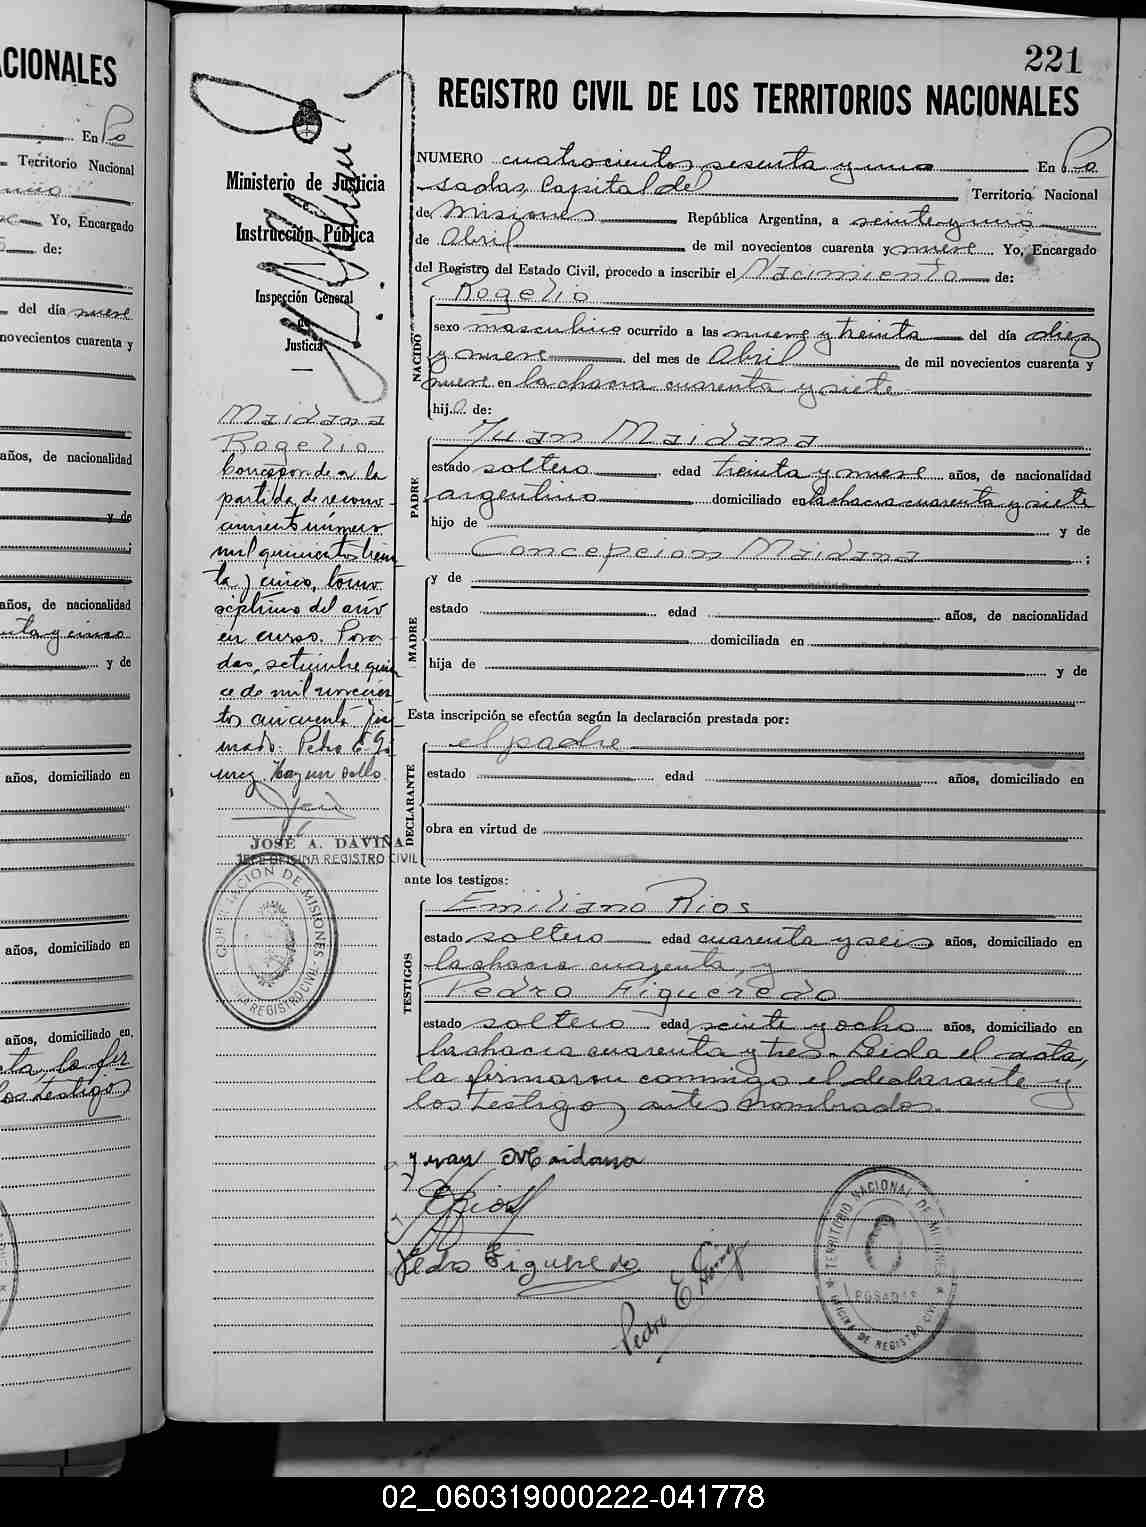 CIONALES
En Po
Territorio Nacional
Yo, Encargado
de:
del día nueve
novecientos cuarenta y
años, de nacionalidad
y de
años, de nacionalidad
y de
años, domiciliado en
años, domiciliado en
años, domiciliado en
los testigos
221
REGISTRO CIVIL DE LOS TERRITORIOS NACIONALES
Ministerio de Justicia
e
Instrucción Pública
Inspección General
de
Justicia
Maidana
Rogelio
Corresponde a la
partida de recono-
cimiento número
mil quinientos trein
ta y cinco, tomo
septimo del año
en curso. Posa-
das, setiembre quin
ce de mil novecien
tos cincuenta. Fir
mado: Pedro E.
Hay un sello
JOSÉ A. DAVIÑA
JEFE OFICINA REGISTRO CIVIL
GOBERNACION DE MISIONES
REGISTRO CIVIL
NUMERO cuatrocientos sesenta y uno En Po
sadas, Capital del Territorio Nacional
de Misiones República Argentina, a veinte y uno
de Abril de mil novecientos cuarenta y nueve Yo, Encargado
del Registro del Estado Civil, procedo a inscribir el Nacimiento de:
NACIDO
Rogelio
sexo masculino ocurrido a las nueve y treinta del día diez
y nueve del mes de Abril de mil novecientos cuarenta y
nueve en la chacra cuarenta y siete
hijo de:
PADRE
Juan Maidana
estado soltero edad treinta y nueve años, de nacionalidad
argentino domiciliado en la chacra cuarenta y siete
hijo de y de
Concepcion Maidana ;
MADRE
y de
estado edad años, de nacionalidad
domiciliada en
hija de y de
Esta inscripción se efectúa según la declaración prestada por:
DECLARANTE
el padre
estado edad años, domiciliado en
obra en virtud de
ante los testigos:
TESTIGOS
Emiliano Rios
estado soltero edad cuarenta y seis años, domiciliado en
la chacra cuarenta y
Pedro Figueredo
estado soltero edad veinte y ocho años, domiciliado en
la chacra cuarenta y tres. Leida el acta,
la firmaron conmigo el declarante y
los testigos antes nombrados.
Juan Maidana
E Rios
Pedro Figueredo
Pedro E
TERRITORIO NACIONAL DE MISIONES
POSADAS
OFICINA DE REGISTRO CIVIL
02_060319000222-041778